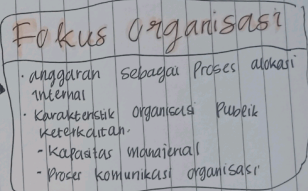 Fokus Organisasi
· anggaran sebagai Proses alokasi
internal
· Karakteristik organisasi Publik
keterkaitan.
- Kapasitas manajerial
- Proses komunikasi organisasi